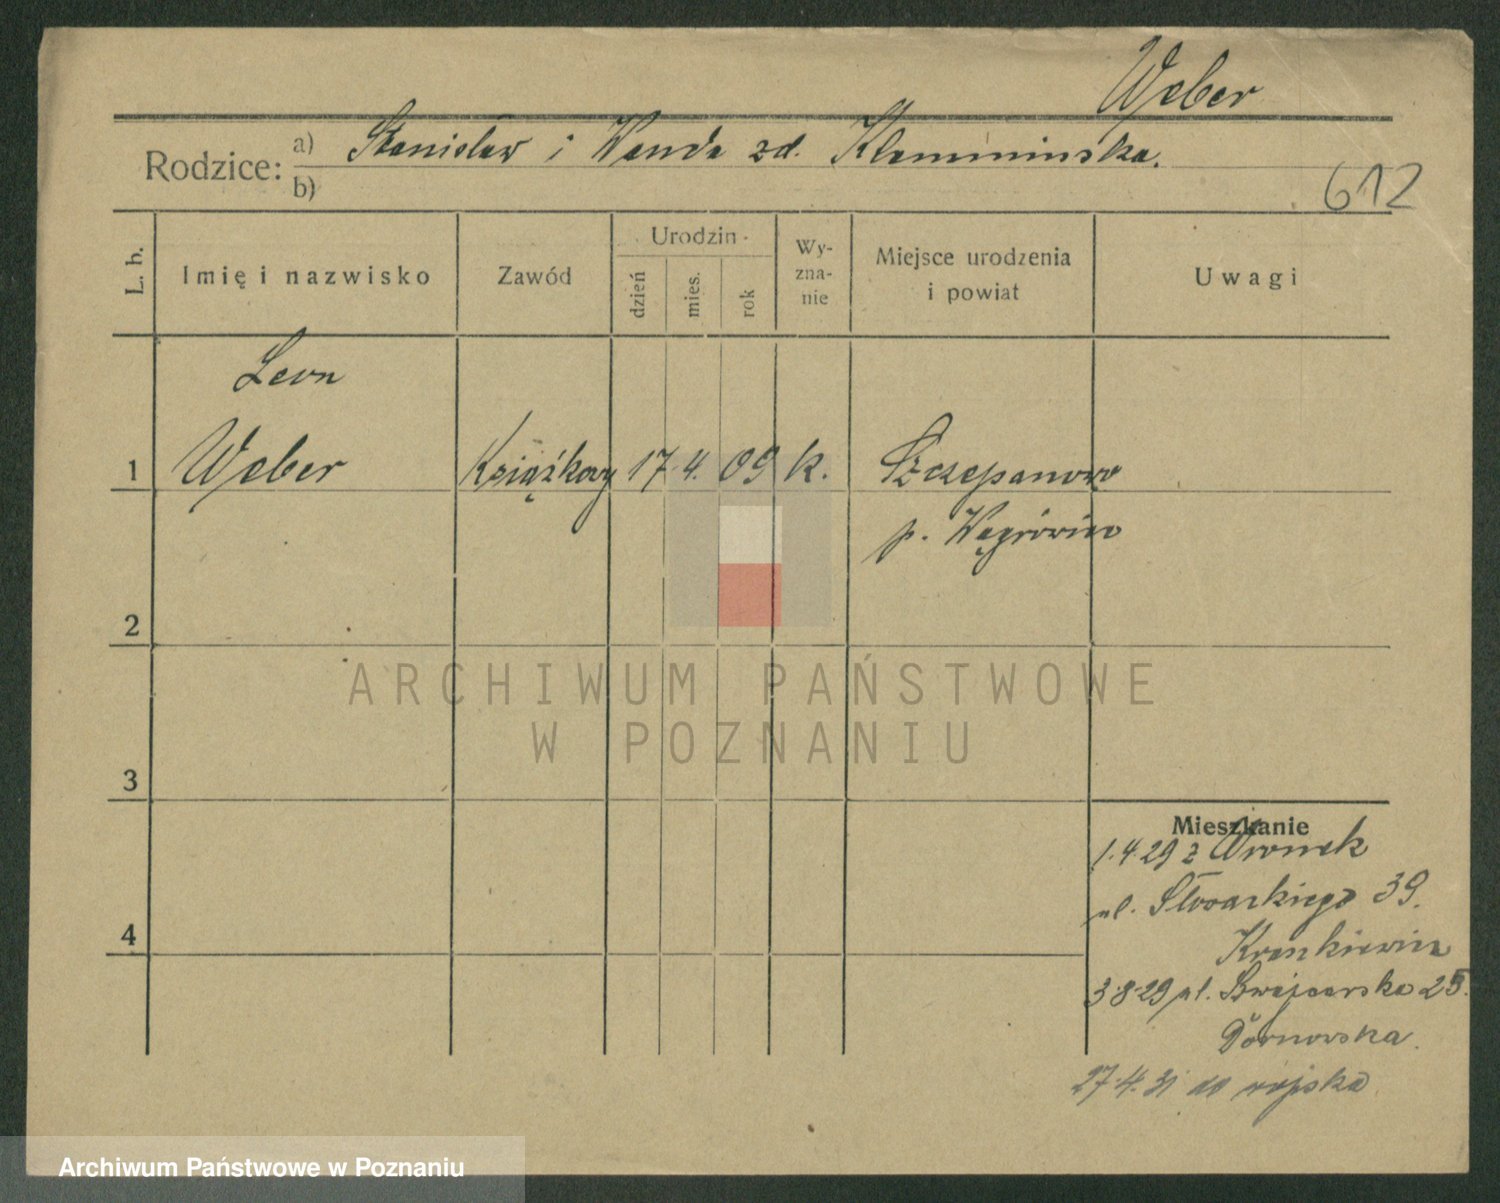 Weber
Rodzice: a) Stanisław i Wanda zd. Klemmińska.
b)
612
L. b.
Imię i nazwisko
Zawód
Urodzin
dzień
mies.
rok
Wy-
zna-
nie
Miejsce urodzenia
i powiat
Uwagi
Leon
1 Weber Książkowy 17. 4. 09 k. Szczepanowo
p. Wągrówiec
2
ARCHIWUM PAŃSTWOWE
W POZNANIU
3
Mieszkanie
1.4.29 z Wronek
ul. Słowackiego 39.
4
3.8.29 ul. Szwajcarska 25.
Dornowska.
27.4.31 do wojska
Archiwum Państwowe w Poznaniu